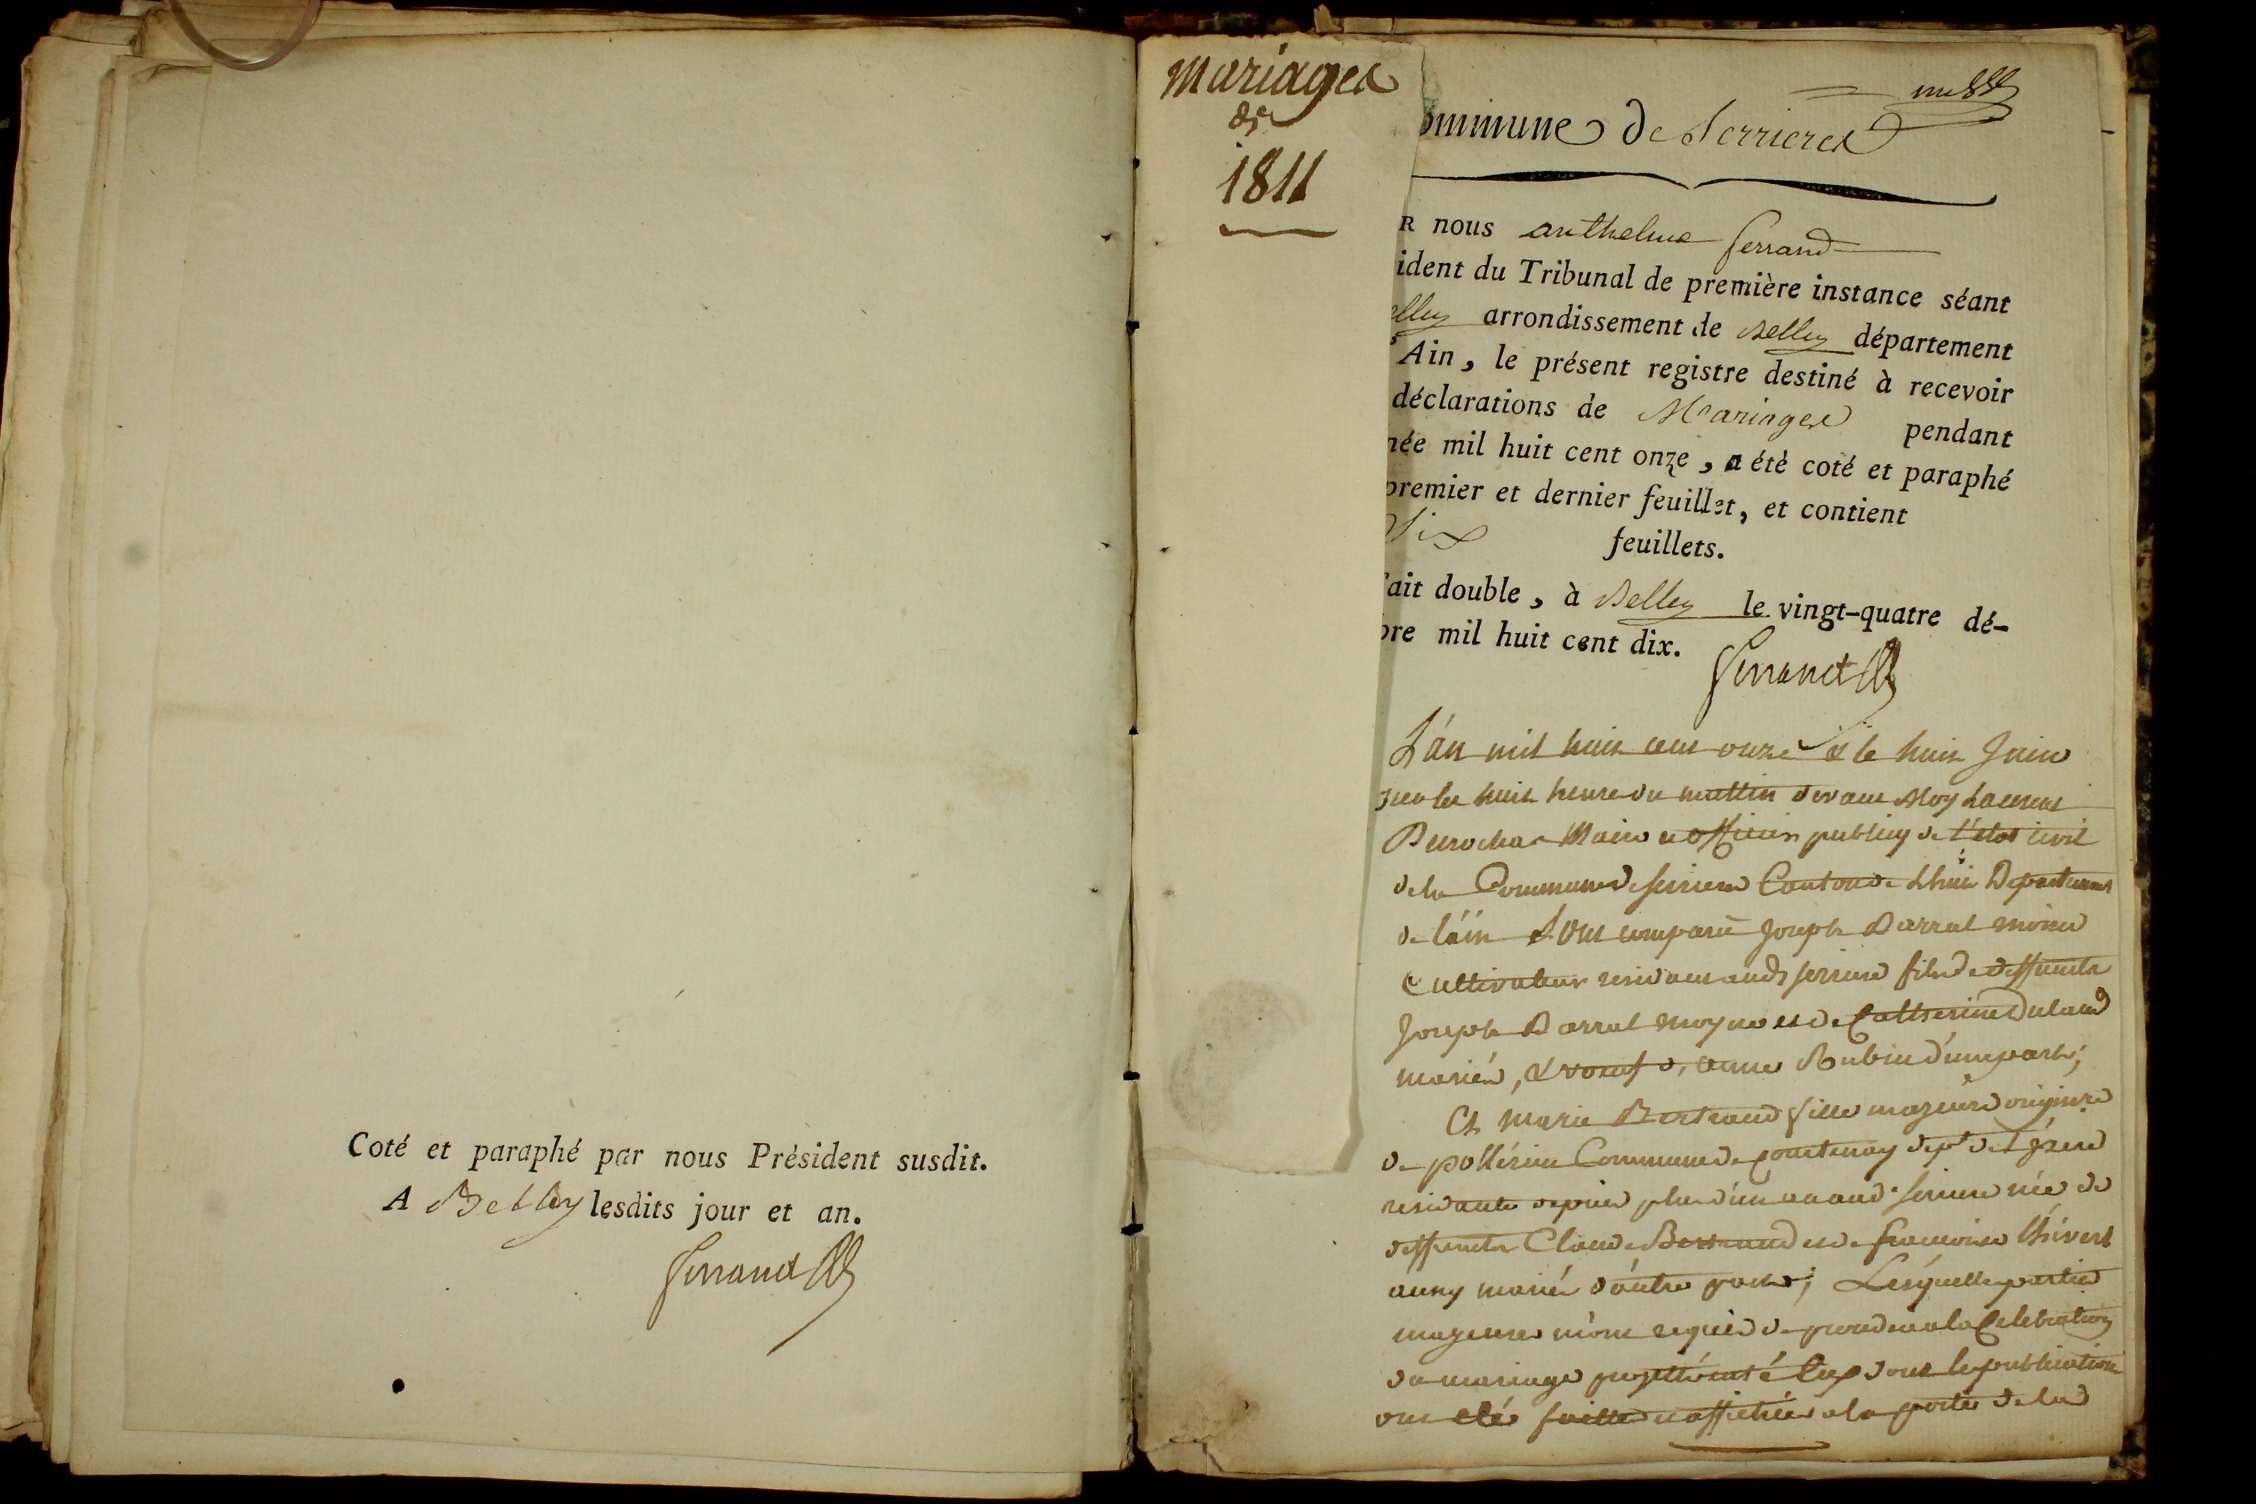 Coté et paraphé par nous Président susdit.
A Belley lesdits jour et an.
Ferrand
Mariages
de
1811
ommune de Serrieres
R nous anthelme ferrand
ident du Tribunal de première instance séant
elley arrondissement de Belley département
Ain, le présent registre destiné à recevoir
déclarations de Mariages pendant
née mil huit cent onze, a été coté et paraphé
premier et dernier feuillet, et contient
Six feuillets.
ait double, à Belley le vingt-quatre dé-
bre mil huit cent dix.
Ferrand
L'an mil huit cent onze & le huit Juin
les huit heure du mattin devant Moy Laurent
Maire et officier public de l'état civil
de la Commune de serriere Canton de Lhuis Departement
de l'ain Sont comparu Joseph Barral moine
Cultivateur residant audt serriere fils de deffunts
Joseph Barral moyne et de Catherine
mariés, & voeuf d'anne Rubin d'une part;
Et Marie Bertrand fille majeure originre
de pollérieu Commune de courtenay dept de l'izere
residante depuis plus d'un an aud. serriere née de
deffunts Claude Bertrand et de francoise
aussy mariés d'autre part; Lesquelle partie
majeures m'ont requis de procedera la Celebration
du mariage projetté enté Eux dont les publication
ont été faitte et affichées a la porte de la